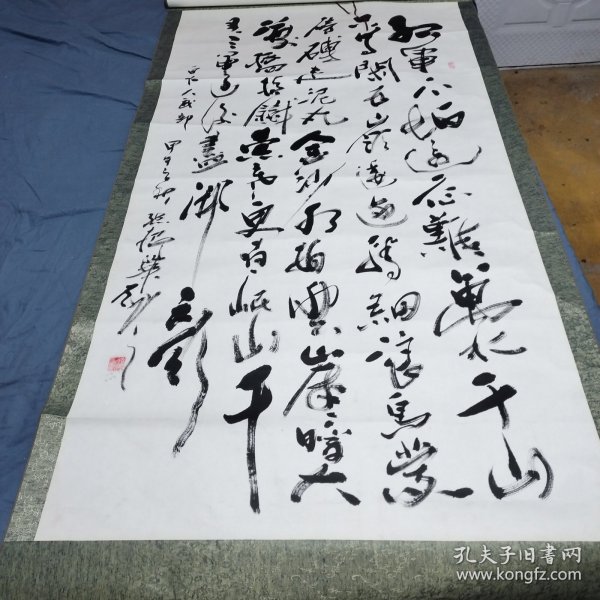 紅軍不怕遠征難萬水千山
只等閑五嶺逶迤騰細浪烏蒙
磅礴走泥丸金沙水拍雲崖暖大
渡橋橫鐵索寒更喜岷山千
里雪三軍過後盡開顏
人武部 甲午之秋
孔夫子旧书网
www.kongfz.com